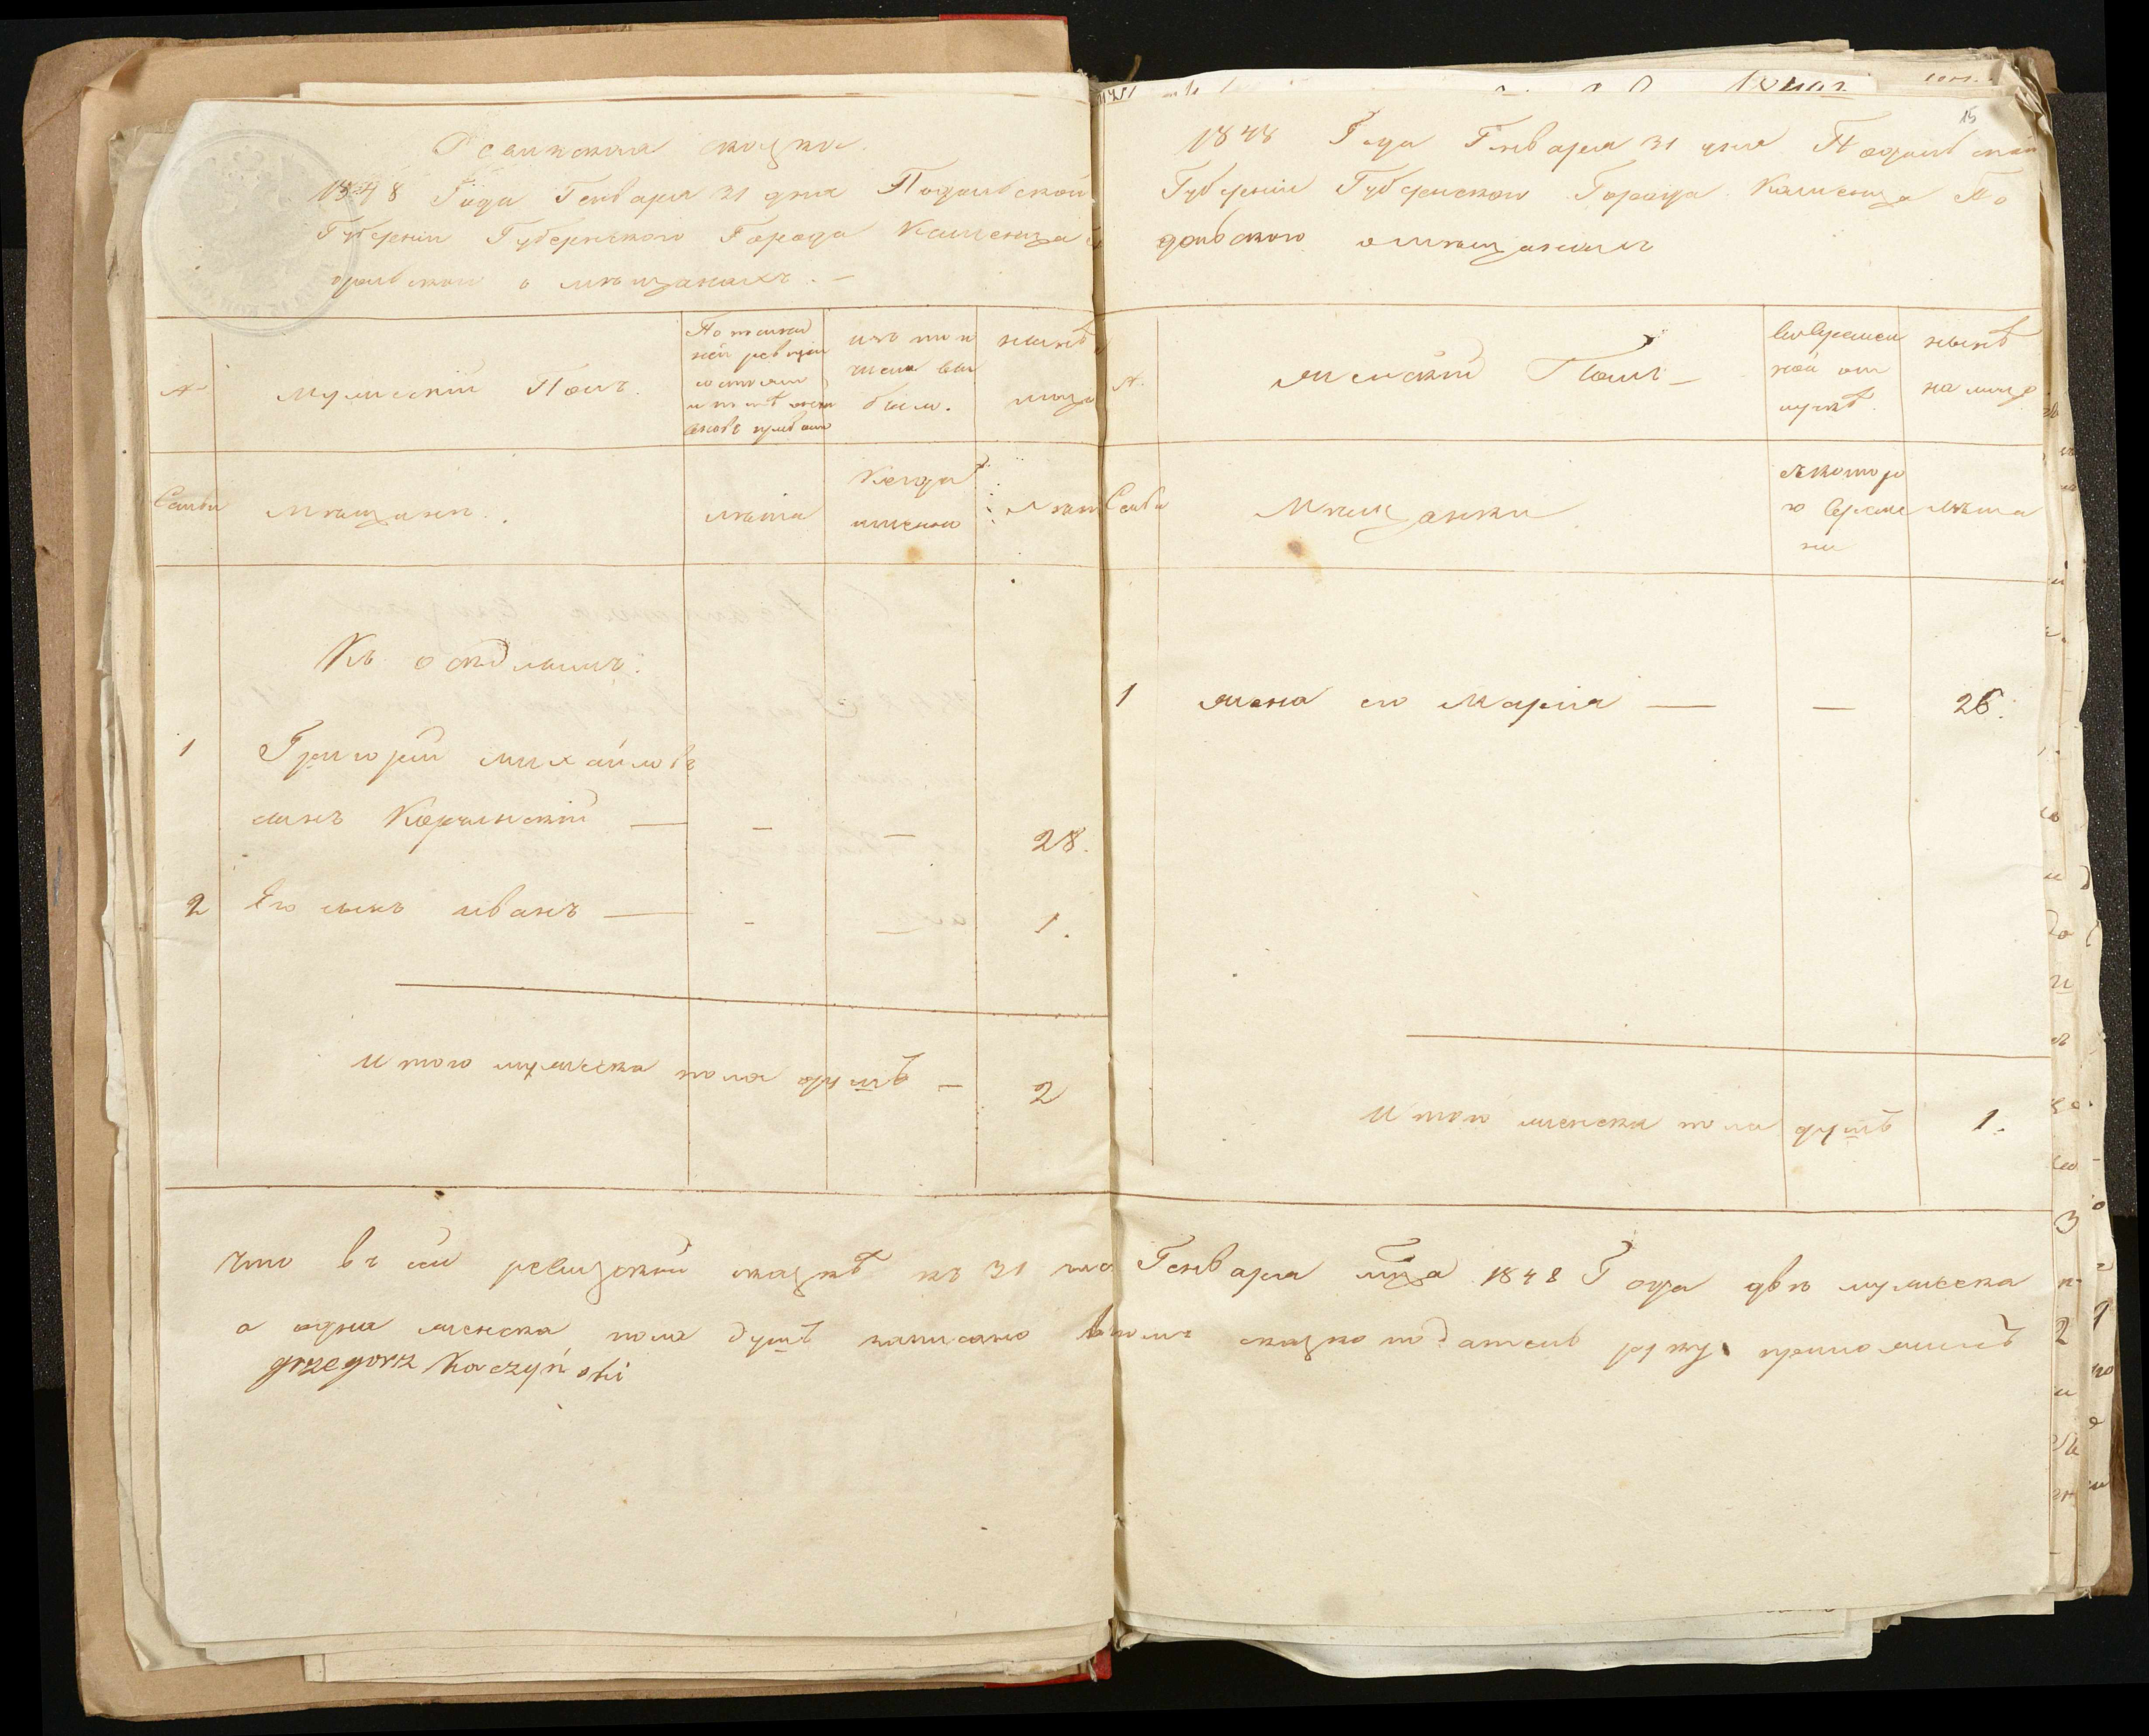 Ревизская сказка.
1848 Года Генваря 31 дня Подольской
Губернии Губернского Города Каменца
дольского о мещанахъ. —
№
Мужескій Полъ.
По последней ревизіи состояло
изъ того числа выбыло.
ныне на лицо
Семьи
Мещане.
лета
Когда именно
Лета
Къ оседлымъ.
1 Григорій Михайловъ
сынъ Корчинскій — — — 28.
2 Его сынъ иванъ — — — 1.
Итого мужеска пола душъ — 2
15
1848 Года Генваря 31 дня Подольской
Губерніи Губернского Города Каменца По
дольского о мещанахъ
№
Женскій Полъ —
во временной отлучке.
ныне на лицо
Семьи
Мещанки
съ которого времени
лета
1 жена его Марія — — 26.
Итого женска пола душъ 1.
Что въ сей ревизской сказке къ 31 Генваря м̃ца 1848 Года две мужеска
а одна женска пола душъ написано въ томъ сказкоподатель руку приложилъ
grzegorz Korczyński